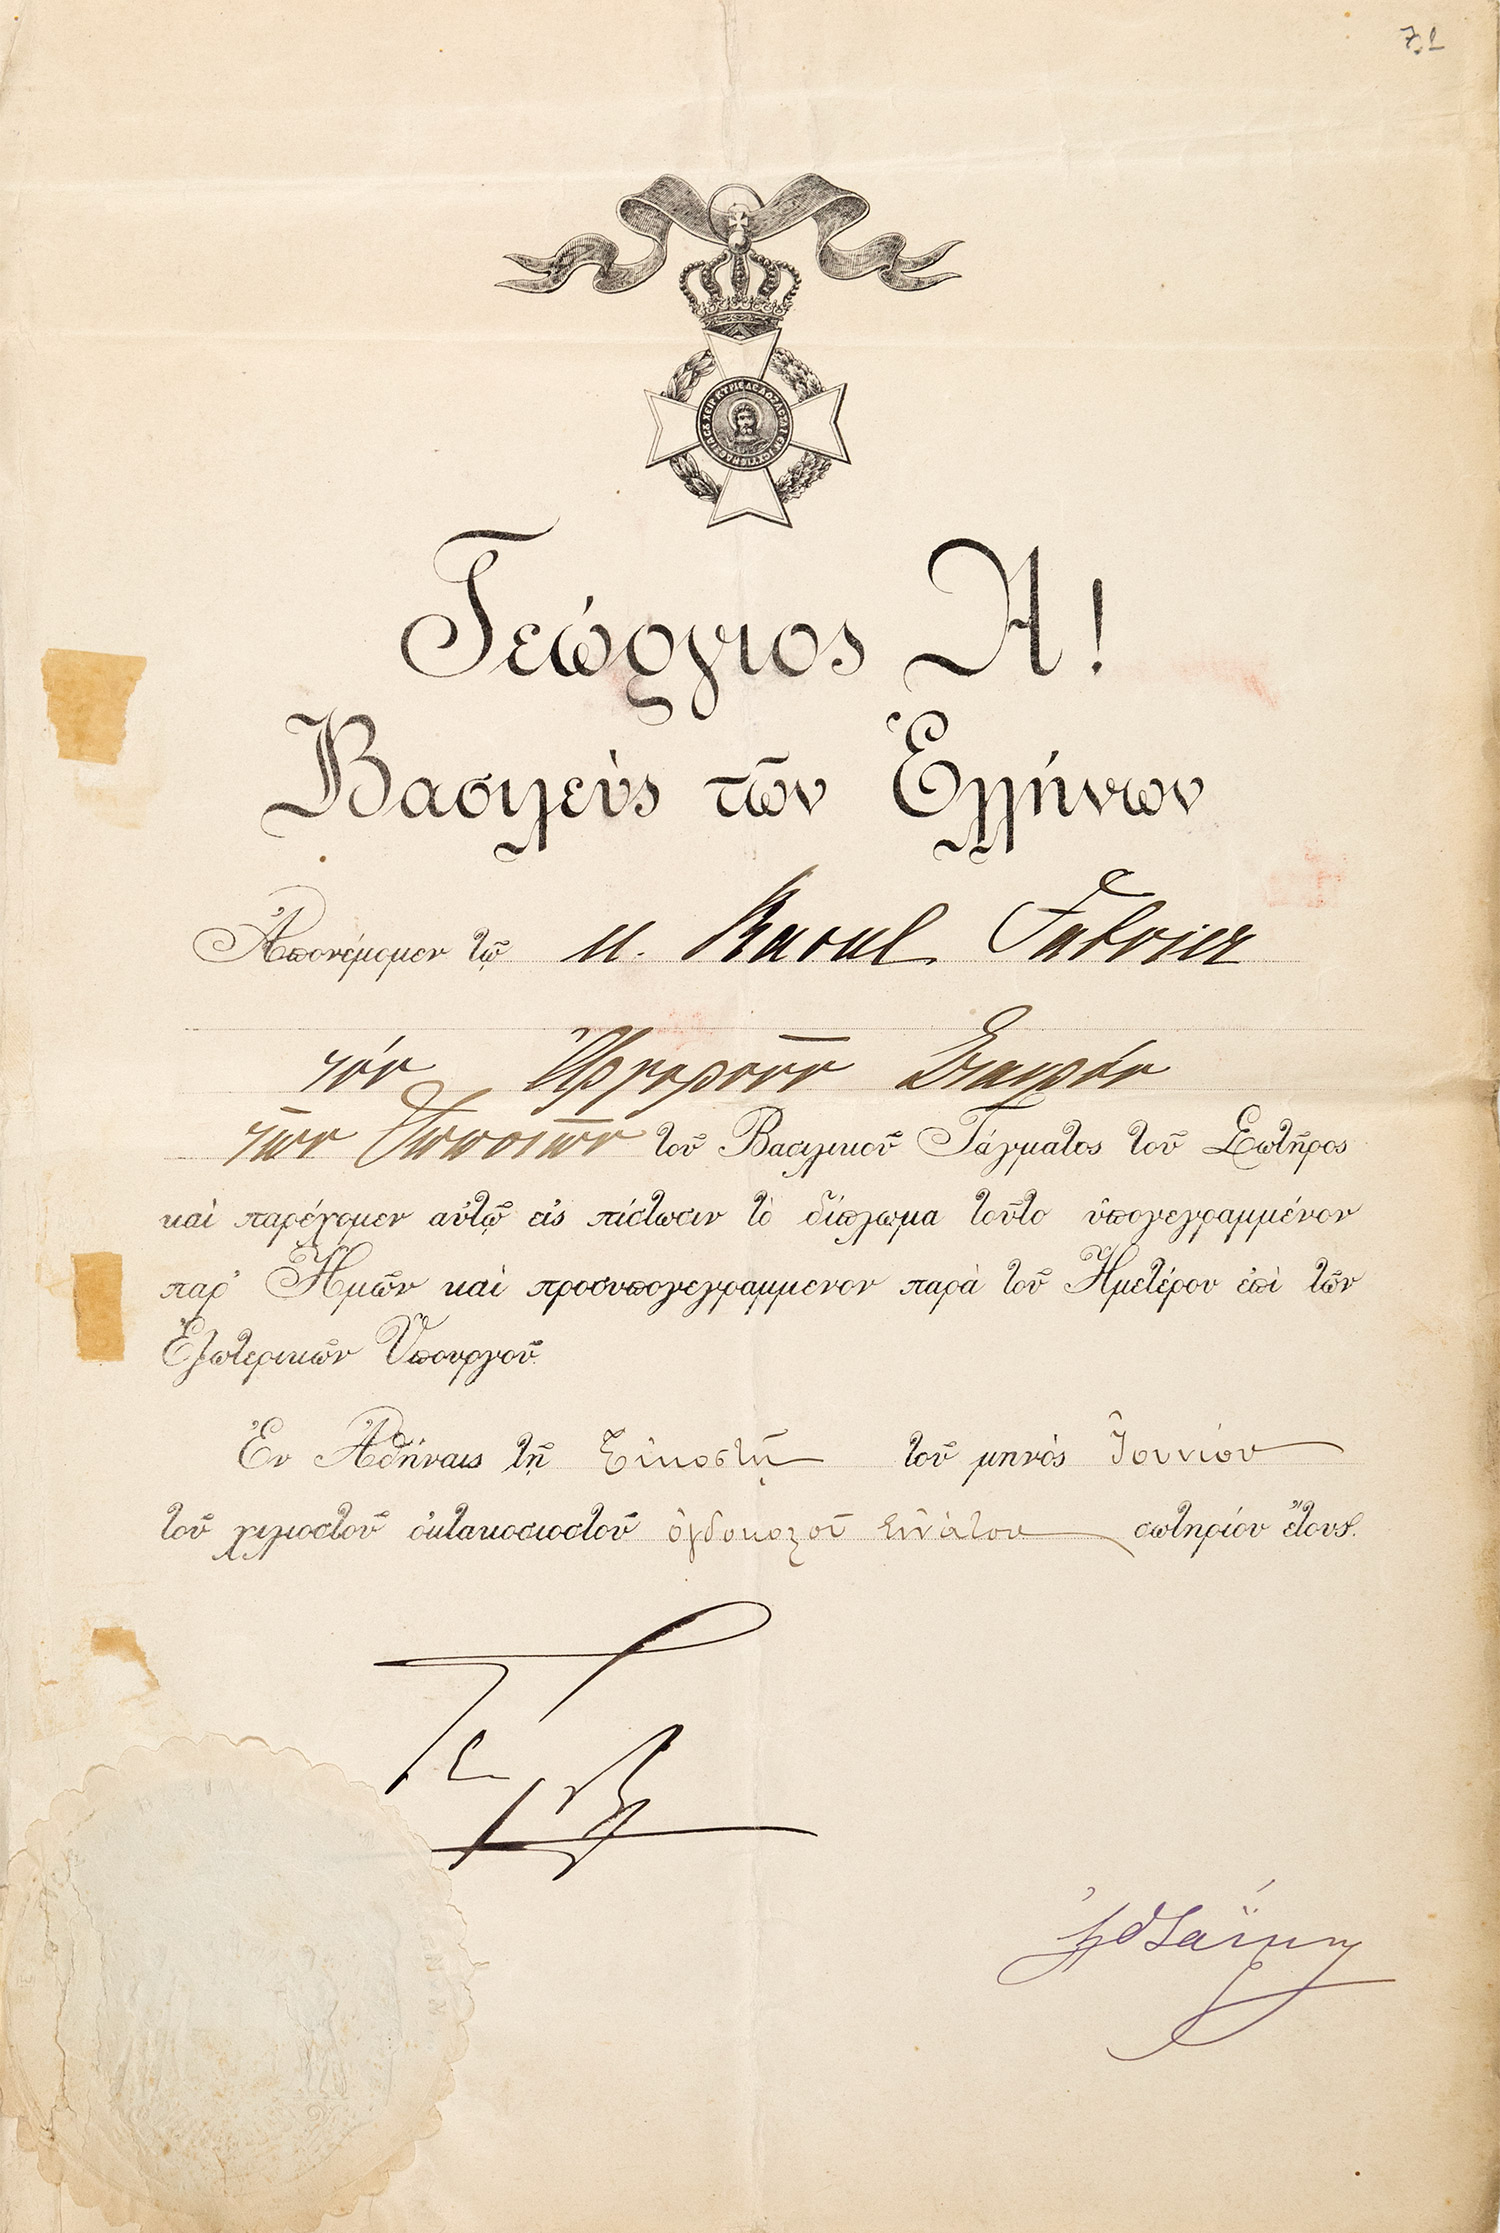 7.1
Γεώργιος Α!
Βασιλεύς τῶν Ἑλλήνων
Ἀπονέμομεν τῷ κ. Raoul
τόν Ἀργυροῦν Σταυρόν
τῶν Ἱπποτῶν τοῦ Βασιλικοῦ Τάγματος τοῦ Σωτῆρος
καὶ παρέχομεν αὐτῷ εἰς πίστωσιν τὸ δίπλωμα τοῦτο ὑπογεγραμμένον
παρ' Ἡμῶν καὶ προσυπογεγραμμενον παρὰ τοῦ Ἡμετέρου ἐπὶ τῶν
Ἐξωτερικῶν Ὑπουργοῦ.
Ἐν Ἀθήναις τῇ Εἰκοστῇ τοῦ μηνὸς Ἰουνίου
τοῦ χιλιοστοῦ ὀκτακοσιοστοῦ ὀγδοηκοστοῦ ἐννάτου σωτηρίου ἔτους.